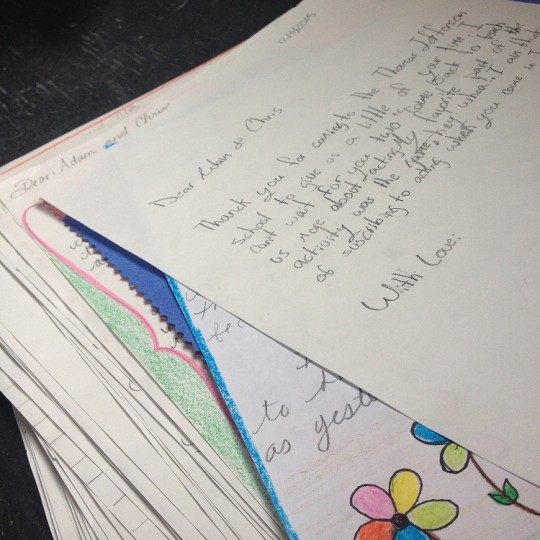 Dear Robin & Chris
Thanck you for coming to the Thomas Jefferson
school to give us a little of your time. I
cant wait for you two to come back to teach
us more about acting. My favorite part of the
activity was the game, "hey what". I am
of suscribing to acting when you come in I
With Love:
Dear: Adam and Chris
to
as yest